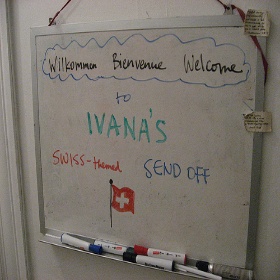 Wilkommen Bienvenue Welcome
to
IVANA'S
SWISS-themed SEND OFF